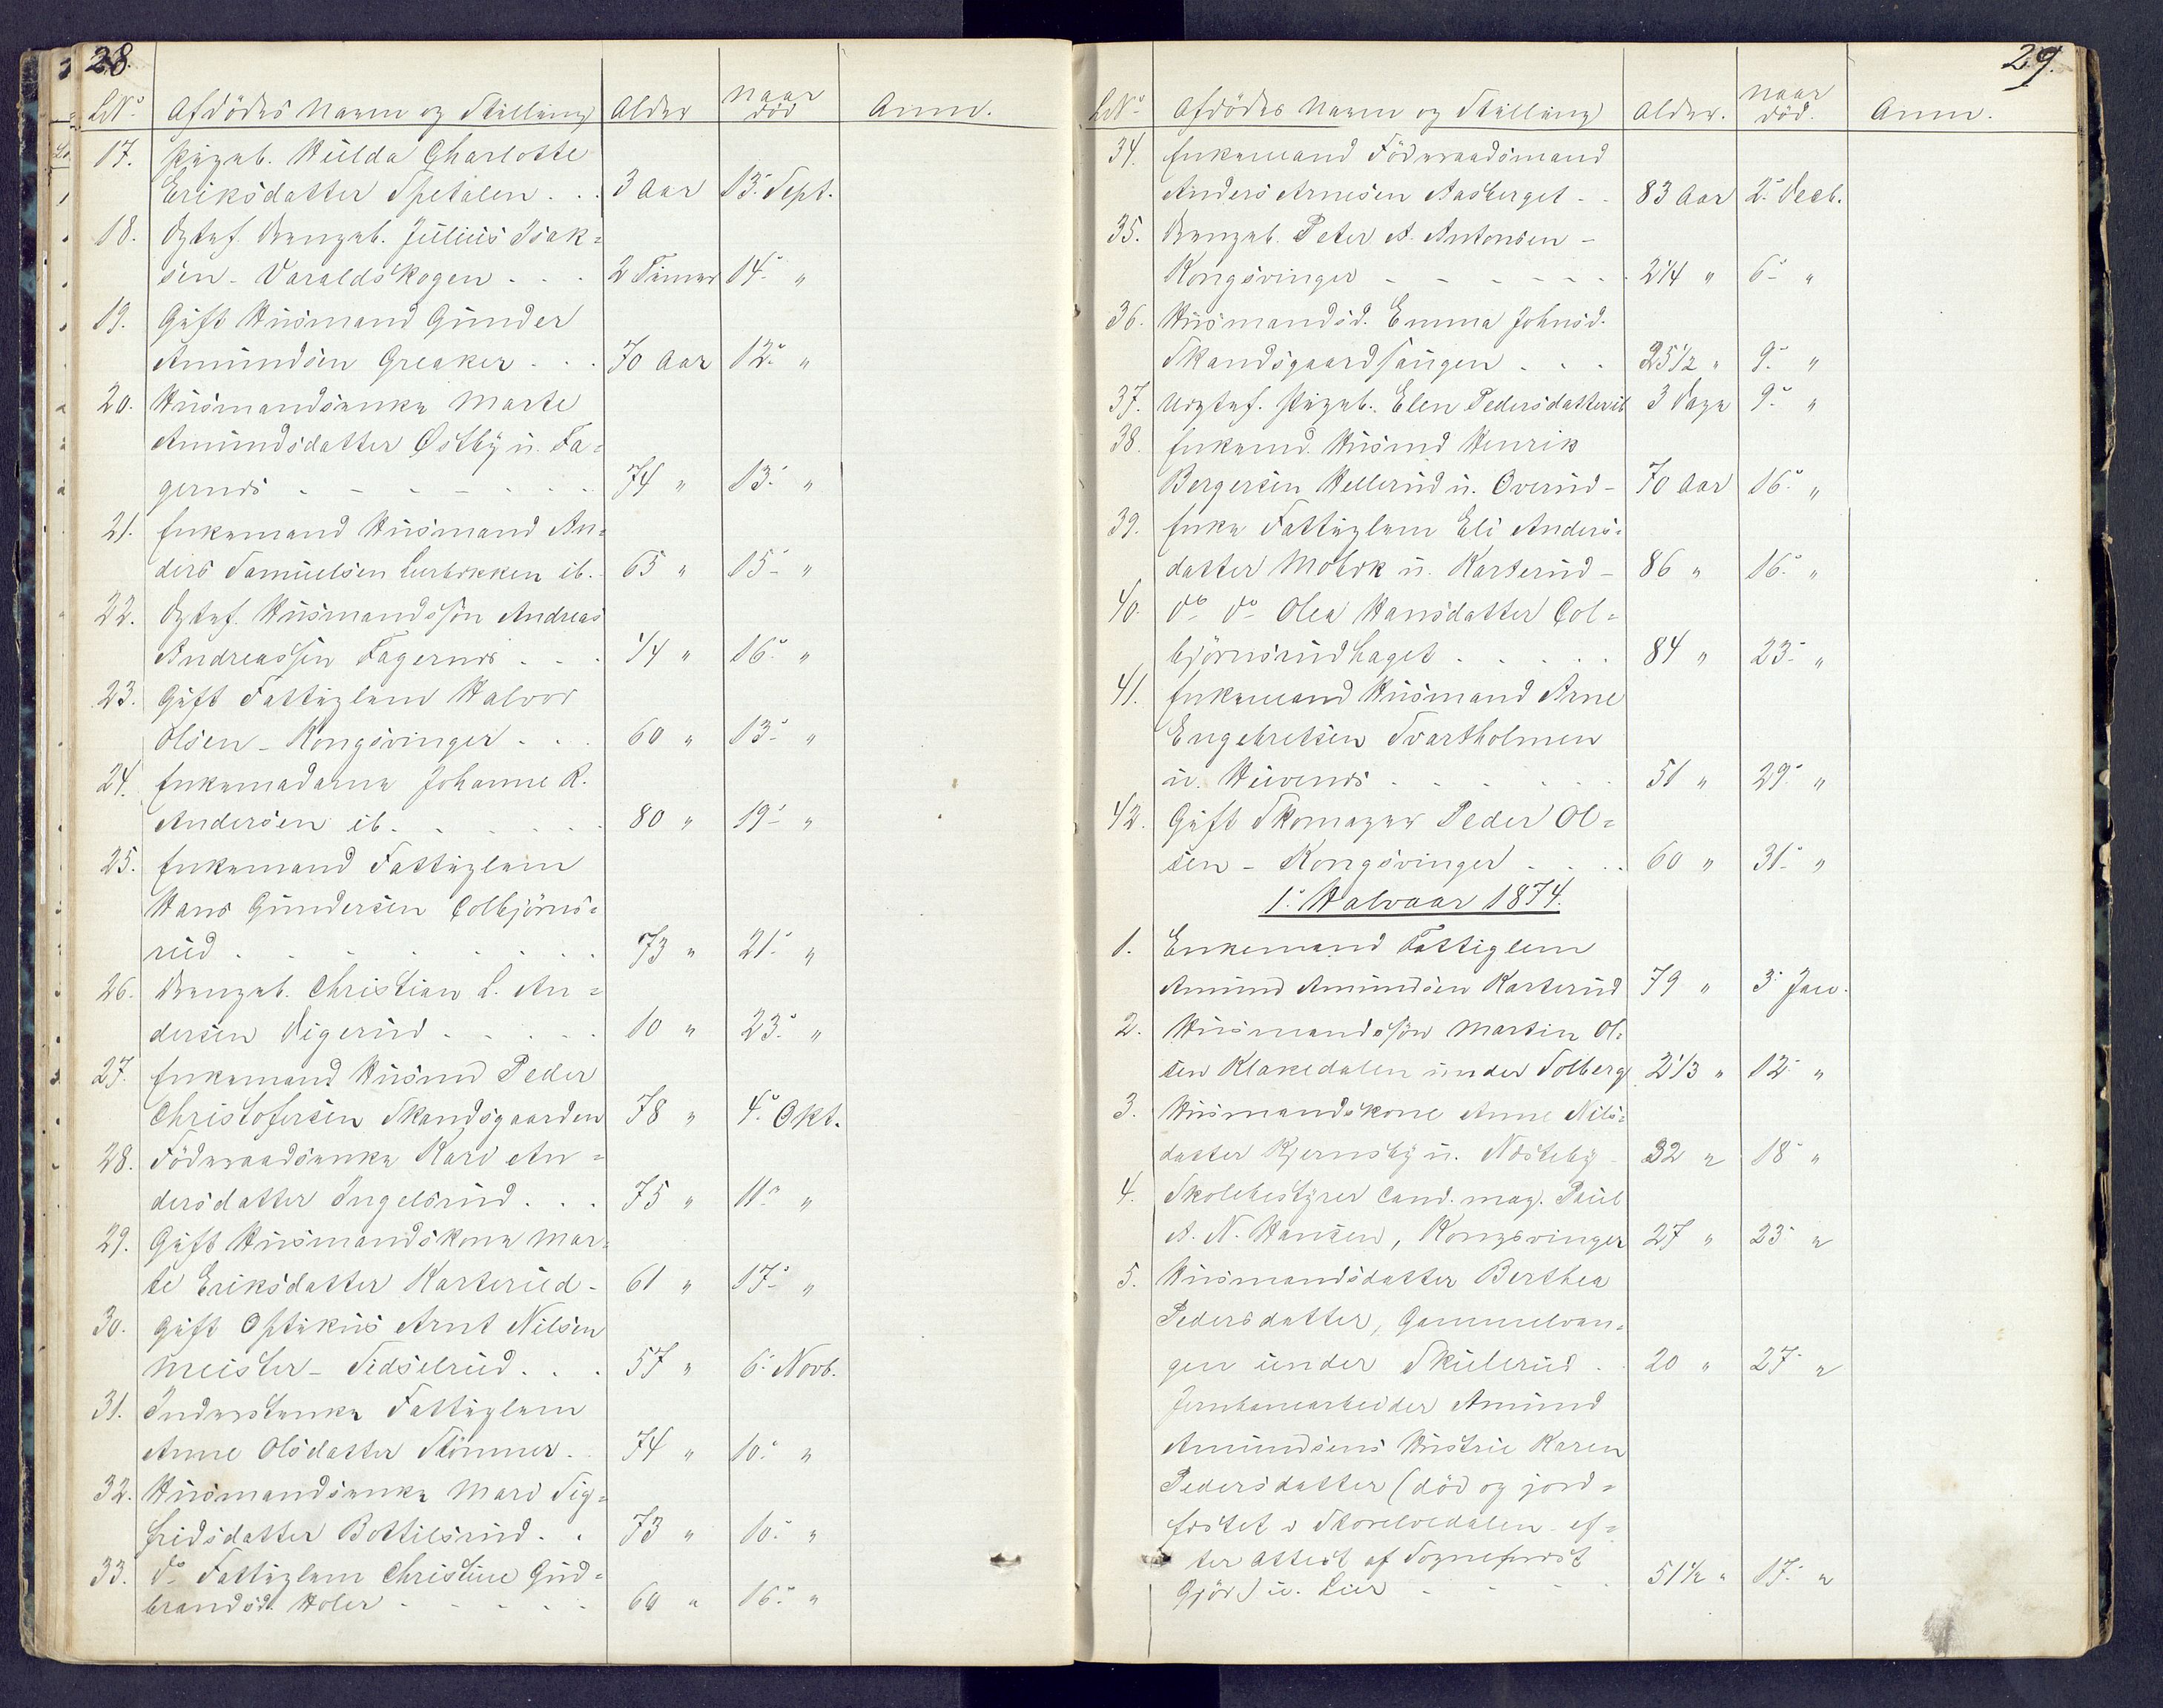 28.
LNo. Afdödes Navn og Stilling Alder Naar död Anm.
17. Pigeb. Hulda Charlotte
Eriksdatter Spetalen . . 3 Aar 13. Sept.
18. Ægtef. Drengeb. Julius Isak=
sen - Varaldskogen . . . 2 Timer 14. "
19. Gift Husmand Gunder
Amundsen Greaker . . . 70 Aar 12. "
20. Husmandsenke Marte
Amundsdatter Østby u. Fa=
gernæs - - - - - 74 " 13. "
21. Enkemand Husmand An=
ders Samuelsen Lurbækken ib. 65 " 15. "
22. Ægtef. Husmandssön Andreas
Andreassen Fagernæs . . . 1/4 " 16. "
23. Gift Fattiglem Halvor
Olsen - Kongsvinger . . . 60 " 13. "
24. Enkemadame Johanne R.
Andersen ib. . . . . 80 " 19. "
25. Enkemand Fattiglem
Hans Gundersen Colbjörns=
rud . . . . . 73 " 21. "
26. Drengeb. Christian L. An=
dersen Digerud . . . . 10 " 23. "
27. Enkemand Husmd Peder
Christofersen Skandsgaarden 78 " 4. Okt.
28. Föderaadsenke Kari An=
dersdatter Ingelsrud . . . 75 " 11. "
29. Gift Husmandskone Mar=
te Eriksdatter Karterud - 61 " 17. "
30. Gift Optikus Arnt Nilsen
Meister - Sidselrud . . . 57 " 6. Novb.
31. Inderstenke Fattiglem
Anne Olsdatter Stömner . . 74 " 10. "
32. Husmandsenke Mari Sig=
fridsdatter Bottilsrud . . 73 " 10. "
33. do Fattiglem Christine Gud=
brandsd. Holer - - - - 60 " 16. "
29.
LNo. Afdödes Navn og Stilling Alder. Naar död. Anm.
34. Enkemand Föderaadsmand
Anders Arnesen Aasberget - - 83 Aar 2. Decb.
35. Drengeb. Peter A. Antonsen -
Kongsvinger - - - - - 2 1/4 " 6. "
36. Husmandsd. Emma Johnsd.
Skandsgaardsangen . . . 25 1/2 " 9. "
37. Uægtef. Pigeb. Elen Pedersdatter ib 3 Dage 9. "
38. Enkemd. Husmd Henrik
Bergersen Hellerud u. Overud - 70 Aar 16. "
39. Enke Fattiglem Eli Anders=
datter Mobæk u. Karterud - 86 " 16. "
40. do do Olea Hansdatter Col=
björnsrudhaget . . . . . 84 " 23. "
41. Enkemand Husmand Arne
Engebretsen Svartholmen
u. Huvenæs - - - - - 51 " 29. "
42. Gift Skomager Peder Ol=
sen - Kongsvinger . . . . 60 " 31. "
1. Halvaar 1874.
1. Enkemand Fattiglem
Amund Amundsen Karterud 79 " 3. Jan.
2. Husmandssön Martin Ol=
sen Klakedalen under Solberg 2 1/3 " 12. "
3. Husmandskone Anne Nils=
datter Kjernsby u. Nösteby - 32 " 18. "
4. Skolebestyrer Cand. mag. Paul
A. N. Hansen, Kongsvinger 27 " 23. "
5. Husmandsdatter Berthea
Pedersdatter, Gammelvan=
gen under Skulerud . . 20 " 27. "
Jernbanearbeider Amund
Amundsens Hustrue Karen
Pedersdatter (död og jord=
fæstet i Skorelvedalen ef=
ter Attest af Sognepræst
Gjör) u. Lier - - - - 51 1/2 " 17. "